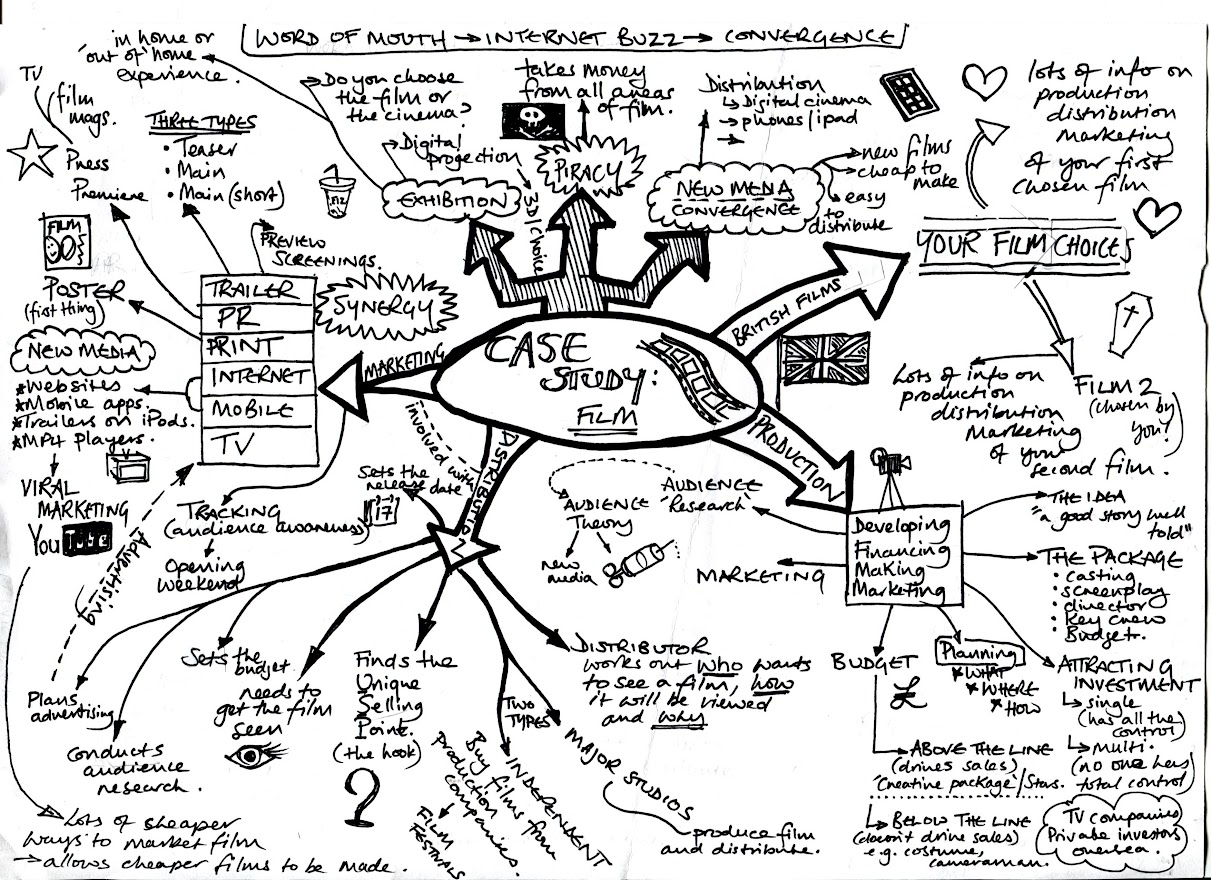 WORD OF MOUTH → INTERNET BUZZ → CONVERGENCE
in home or
'out of' home
experience.
TV
film
mags.
Press
Premiere
THREE TYPES
• Teaser
• Main
• Main (short)
PREVIEW
SCREENINGS.
→ Do you choose
the film or
the cinema?
→ Digital
projection
3D/choice
EXHIBITION
takes money
from all areas
of film.
PIRACY
Distribution
↳ Digital cinema
→ phones/ipad
→
NEW MEDIA
CONVERGENCE
→ new films
→ cheap to
make
→ easy
to
distribute
lots of info on
production
distribution
marketing
of your first
chosen film
YOUR FILM CHOICES
BRITISH FILMS
FILM 2
(chosen by
you!)
Lots of info on
production
distribution
Marketing
of your
second film.
CASE
STUDY:
FILM
MARKETING
SYNERGY
TRAILER
PR
PRINT
INTERNET
MOBILE
TV
FILM
POSTER
(first thing)
NEW MEDIA
*Websites
*Mobile apps.
*Trailers on iPods.
*MP4 players.
VIRAL
MARKETING
YouTube
Advertising
TRACKING
(audience awareness)
Opening
weekend
→ Lots of cheaper
ways to market film
→ allows cheaper films to be made.
involved with
Sets the
release date
17
Plans
advertising
conducts
audience
research.
Sets the
budget
needs to
get the film
seen
Finds the
Unique
Selling
Point.
(the hook)
?
TWO
TYPES
INDEPENDENT
Buy films from
production
companies.
FILM
FESTIVALS
MAJOR STUDIOS
produce film
and distribute.
DISTRIBUTOR
works out who wants
to see a film, how
it will be viewed
and why
PRODUCTION
AUDIENCE
'Research'
AUDIENCE
Theory
new
media
MARKETING
Developing
Financing
Making
Marketing
→ THE IDEA
"a good story well
told"
→ THE PACKAGE
• casting
• screenplay
• director
• Key crew
• Budget.
ATTRACTING
INVESTMENT
↳ single
(has all the
control)
↳ multi.
(no one has
total control)
TV companies
Private investors
oversea.
Planning
* WHAT
* WHERE
* HOW
BUDGET
£
→ ABOVE THE LINE
(drives sales)
'Creative package'/Stars.
↳ BELOW THE LINE
(doesn't drive sales)
e.g. costume,
cameraman.